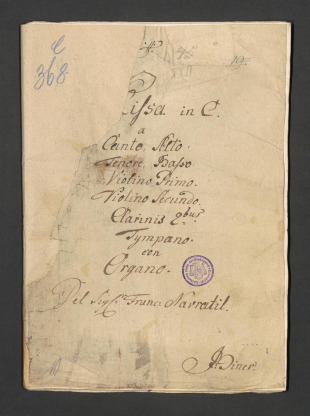 368
issa in C.
a
Canto, Alto.
Tenore, Basso
Violino Primo.
Violino Secundo.
Clarinis 2bus
Tympano.
con
Organo.
Del Sigre Franc: Navratil.